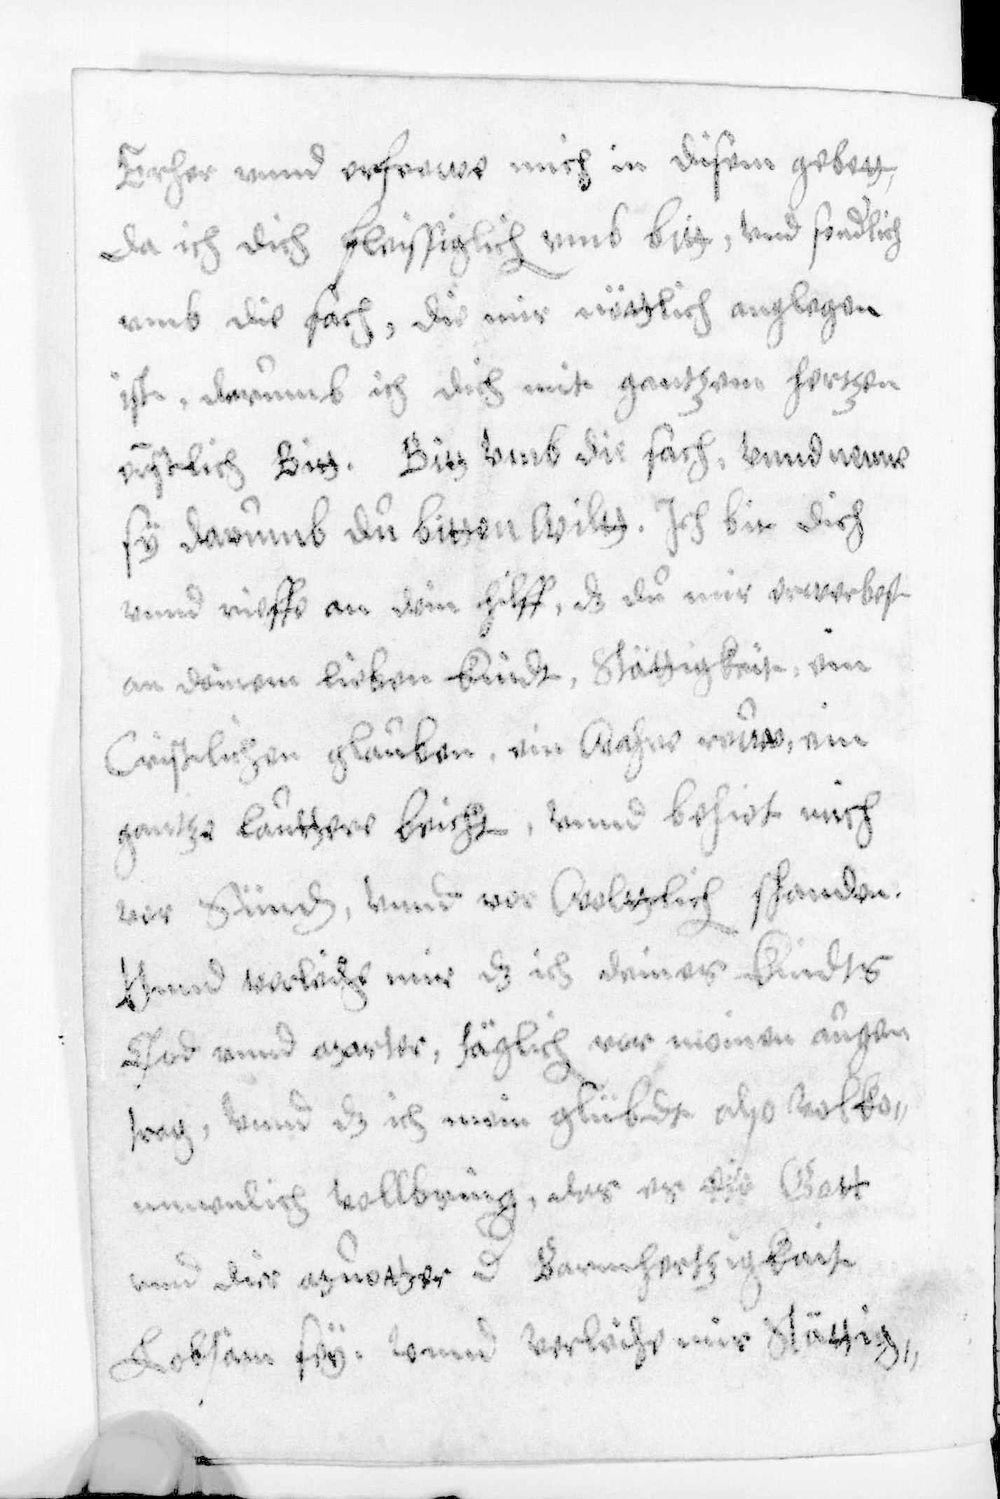 Erher vnnd erfrewe mich in disem gebett,
da ich dich fleissiglich vmb bitt, vnd sondlich
vmb die sach, die mir nöttlich anglegen
ist, darumb ich dich mit gantzem hertzen
ernstlich Bitt. Bitt vmb die sach, vnnd nenne
sÿ darumb du bitten wiltt. Ich bit dich
vnnd rieffe an dein hilff, dz du mir erwerbest
an deinem lieben kindt, Stättigkeit, ein
Cristlichen glauben, ein wahre reüw, ein
gantze lauttere beicht, vnnd behiet mich
vor Sünd, vnnd vor weltlich schanden.
Vnnd verleihe mir dz ich deines kindts
Tod vnnd marter, täglich vor meinen augen
trag, vnnd dz ich mein glübdt also volko„
mmenlich vollbring, das es Gott
vnd dir muotter d Barmhertzigkait
Lobsam seÿ. vnnd verleihe mir Stättig„